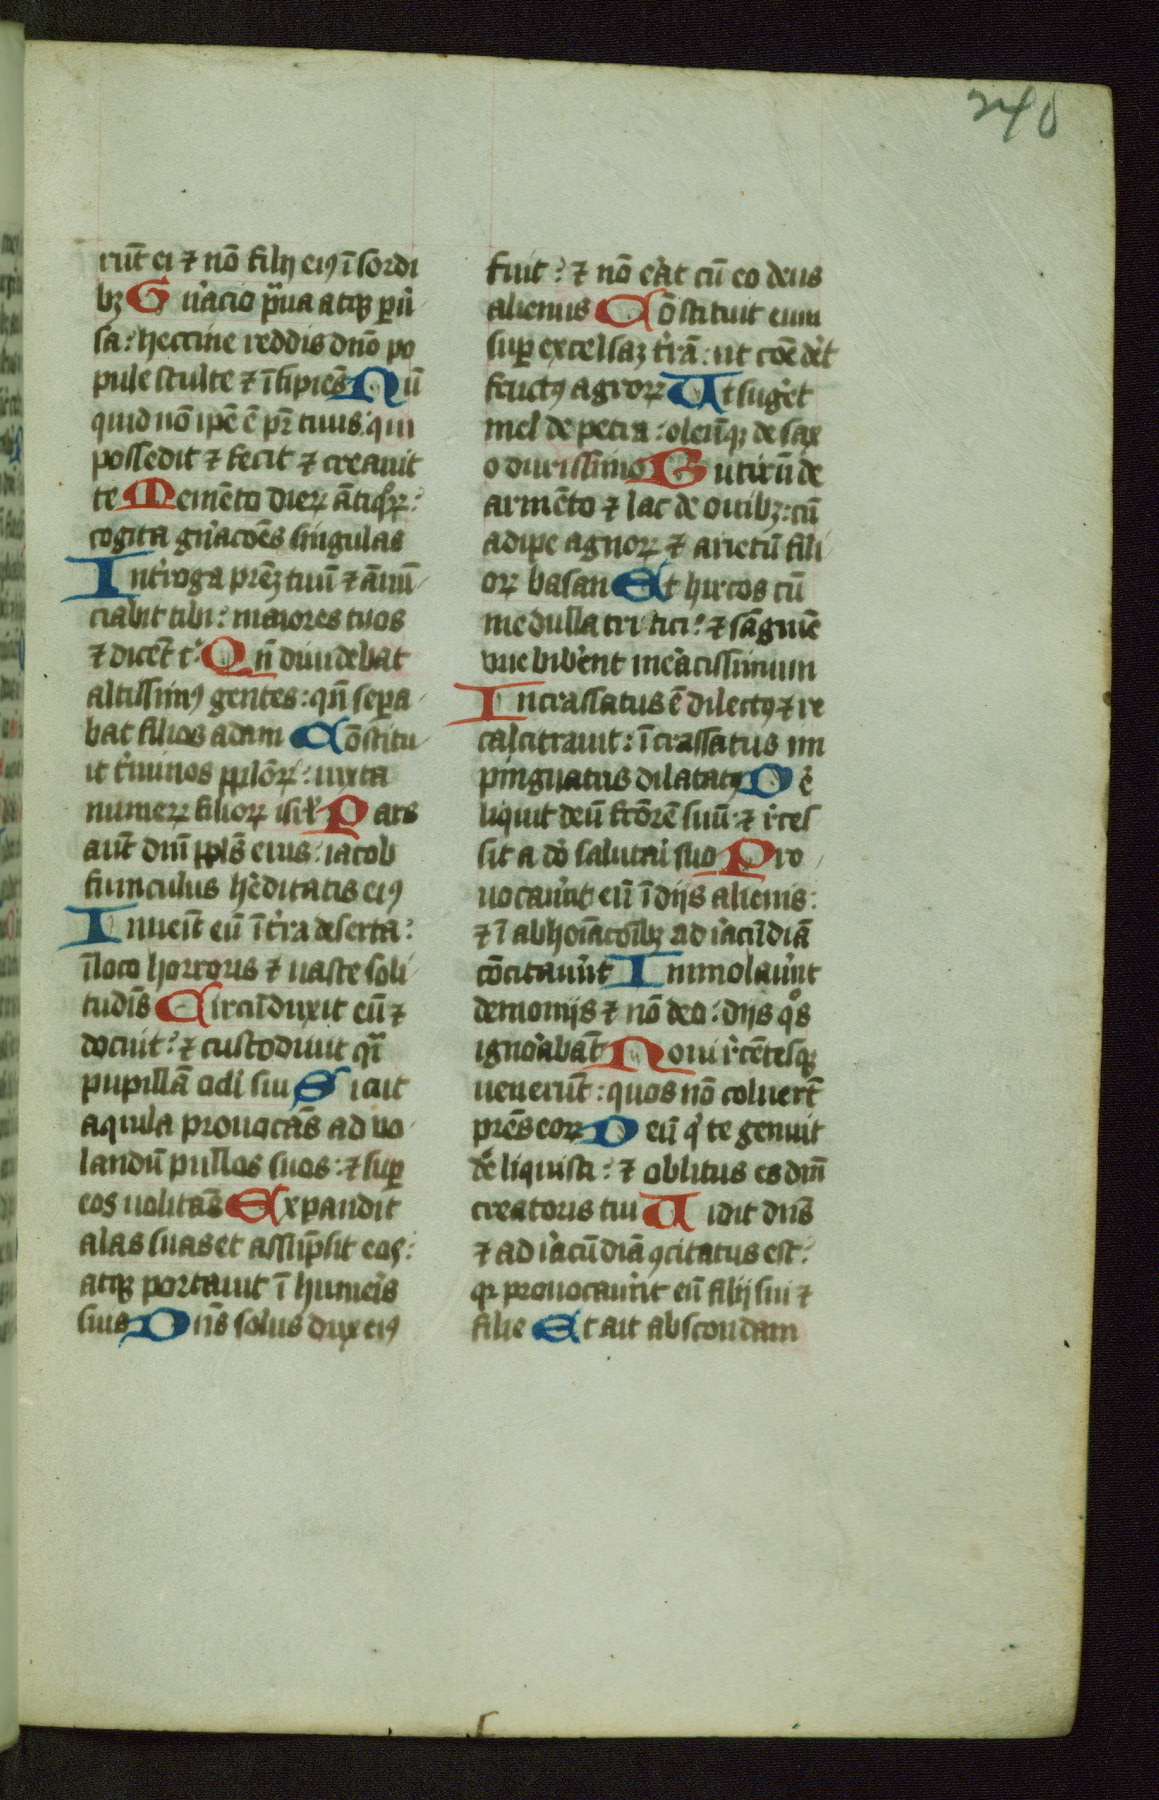 240
rūt ei ⁊ nō filij eiꝰ ī sordi
bꝫ Gn̄acio p̄ua atqꝫ ꝑū
sa: heccine reddis dn̄o po
pule stulte ⁊ īsipiēs Nū
quid nō ipē ē pr̄ tuus: qui
possedit ⁊ fecit ⁊ creauit
te Memēto dieꝝ ātiq̊ꝝ:
cogita gn̄acōes singulas
Int̄roga prēꝫ tuū ⁊ ānū
ciabit tibi: maiores tuos
⁊ dicēt t͛ Qn̄ diuidebat
altissimꝰ gentes: qn̄ seꝑa
bat filios adam Cōstitu
it t̄minos pplōꝝ: iuxta
numeꝝ filioꝝ isrł Pars
aut̄ dn̄i ppl̄s eius: iacob
funiculus h̄editatis eiꝰ
Inueīt eū ī t̄ra deserta:
ī loco horroris ⁊ uaste soli
tudīs Circūduxit eū ⁊
docuit: ⁊ custodiuit qͣi
pupillā oc̄li sui Sicut
aquila prouocās ad uo
landū pullos suos: ⁊ suꝑ
eos uolitās Expandit
alas suas et assūpsit eos:
atqꝫ portauit ī humeīs
suis Dn̄s solus dux eiꝰ
fuit: ⁊ nō erat cū eo deus
alienus Cōstituit eum
suꝑ excelsaꝫ t̄rā: ut cōedēt
fructꝰ agroꝝ Ut suḡet
mel de petra: oleūqꝫ de sax
o durissimo Butirū de
armēto ⁊ lac de ouibꝫ: cū
adipe agnoꝝ ⁊ arietū fili
oꝝ basan Et hircos cū
medulla tritici: ⁊ sāguinē
uue bib̄ent meracissimum
Incrassatus ē dilectꝰ ⁊ re
calcitrauit: īcrassatus im
pinguatus dilatatꝰ De
liquit deū fc̄orē suū: ⁊ r̄ces
sit a dō salutai suo Pro
uocaūt eū ī dijs alienis:
⁊ ī abhoīacōibꝫ ad iracūdiā
cōcitauūt Immolaūt
demonijs ⁊ nō deo: dijs qͦs
ignorabāt Noui r̄cētesqꝫ
uenerūt: quos nō coluert̄
prēs eoꝝ Deū qͥ te genuit
deliquisti: ⁊ oblitus es dn̄i
creatoris tui Uidit dn̄s
⁊ ad iracūdiā ꝯcitatus est:
qꝛ prouocaūt eū filij sui ⁊
filie Et ait abscondam